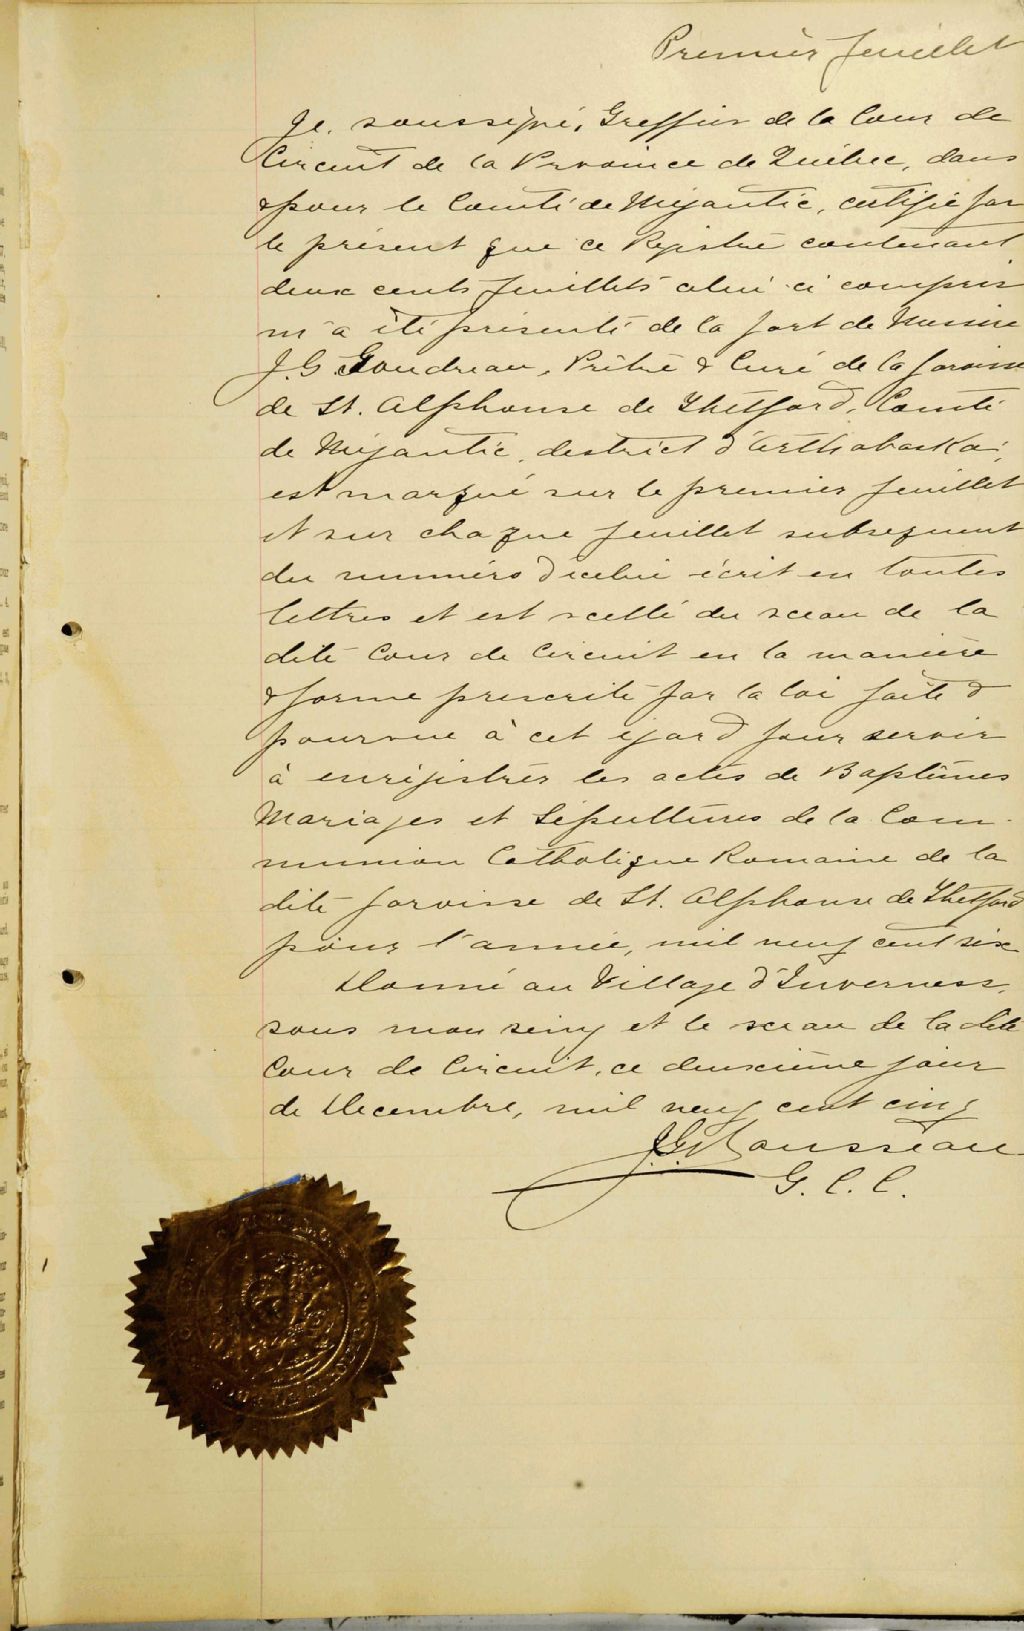 Premier feuillet
Je, soussigné, Greffier de la Cour de
Circuit de la Province de Québec, dans
& pour le Comté de Mégantic, certifie par
le présent que ce Régistre contenant
deux cents feuillets celui-ci compris
m'a été présenté de la part de Messire
J. G. Goudreau, Prêtre & Curé de la paroisse
de St. Alphonse de Thetford, Comté
de Mégantic, district d'Arthabaska;
est marqué sur le premier feuillet
et sur chaque feuillet subsequent
du numéro d'icelui écrit en toutes
lettres et est scellé du sceau de la
dite Cour de Circuit en la manière
& forme prescrite par la loi faite &
pourvue à cet égard pour servir
à enrégistrer les actes de Baptêmes
Mariages et Sépultures de la Com-
munion Catholique Romaine de la
dite paroisse de St. Alphonse de Thetford
pour l'année, mil neuf cent six
Donné au Village d'Inverness,
sous mon seing et le sceau de la dite
Cour de Circuit, ce deuxième jour
de Decembre, mil neuf cent cinq
Rousseau
G. C. C.